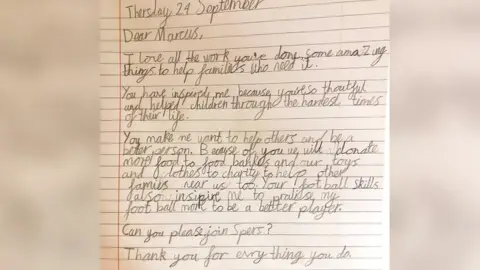 Thursday 24 September
Dear Marcus,
I love all the work you've done some amazing
things to help families who need it.
You have inspired me because you're so thoutful
and helped children through the hardest times
of their life.
You make me want to help others and be a
better person. Because of you we will donate
more food to food banks and our toys
and clothes to charity to help other
famiies near us too. Your foot ball skills
also inspire me to pratise my
foot ball more to be a better player.
Can you please join Spers?
Thank you for evry thing you do